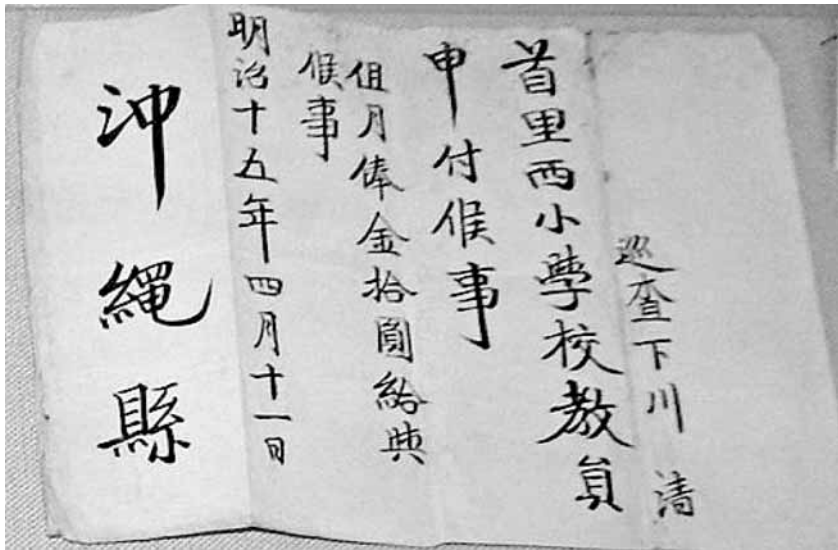 巡査下川 清
首里西小學校教員
申付候事
但月俸金拾圓給與
候事
明治十五年四月十一日
沖繩縣